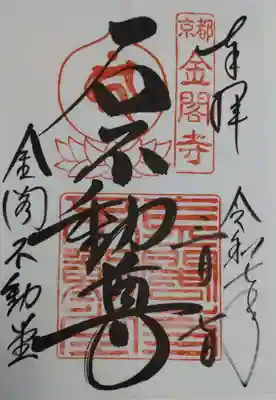 奉拝
京都
金閣寺
令和七年
二月七日
石不動尊
金閣不動堂